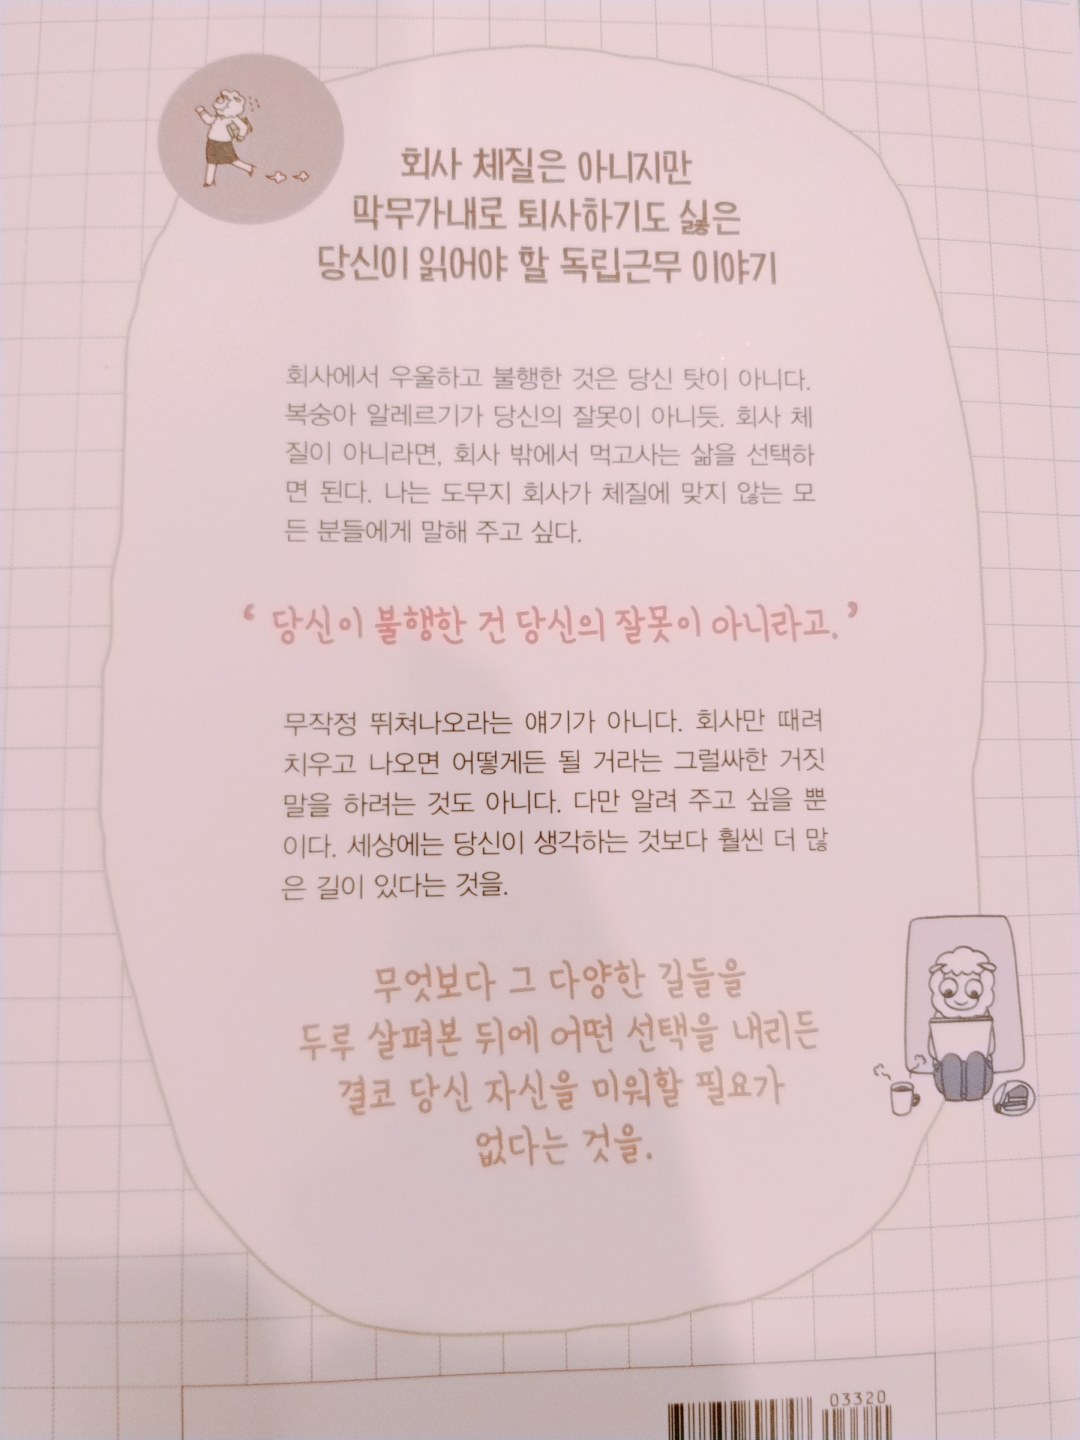 회사 체질은 아니지만
막무가내로 퇴사하기도 싫은
당신이 읽어야 할 독립근무 이야기
회사에서 우울하고 불행한 것은 당신 탓이 아니다.
복숭아 알레르기가 당신의 잘못이 아니듯. 회사 체
질이 아니라면, 회사 밖에서 먹고사는 삶을 선택하
면 된다. 나는 도무지 회사가 체질에 맞지 않는 모
든 분들에게 말해 주고 싶다.
‘당신이 불행한 건 당신의 잘못이 아니라고.’
무작정 뛰쳐나오라는 얘기가 아니다. 회사만 때려
치우고 나오면 어떻게든 될 거라는 그럴싸한 거짓
말을 하려는 것도 아니다. 다만 알려 주고 싶을 뿐
이다. 세상에는 당신이 생각하는 것보다 훨씬 더 많
은 길이 있다는 것을.
무엇보다 그 다양한 길들을
두루 살펴본 뒤에 어떤 선택을 내리든
결코 당신 자신을 미워할 필요가
없다는 것을.
03320